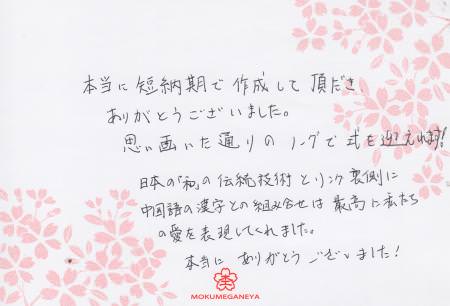 本当に短納期で作成して頂だき
ありがとうございました。
思い画いた通りのリングで式を迎えれます!
日本の「和」の伝統技術とリング裏側に
中国語の漢字との組み合せは最高に私たち
の愛を表現してくれました。
本当にありがとうございました!
MOKUMEGANEYA